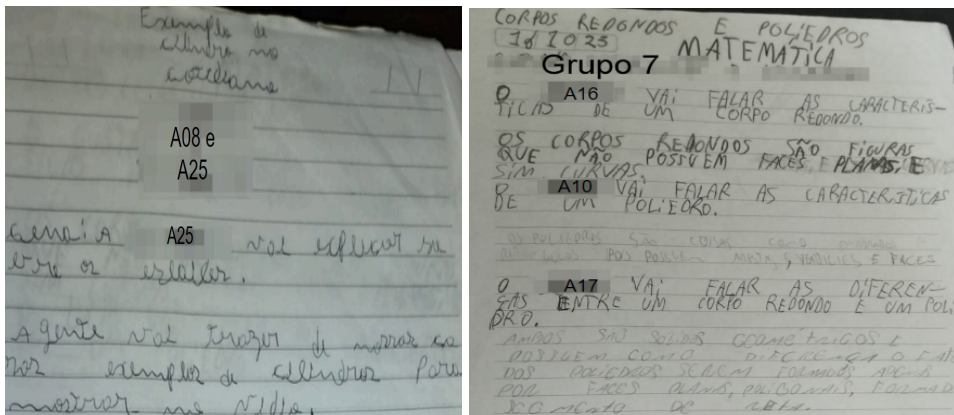 Exemplo de
cilindro no
cotidiano
A08 e
A25
cena: A A25 vai explicar so
bre os
A gente vai trazer de nossas ca
zas exemplos de cilindros Para
mostrar no video.
CORPOS REDONDOS E POLÍEDROS
MATEMÁTICA
Grupo 7
O A16 VAI FALAR AS CARACTERIS-
TICAS DE UM CORPO REDONDO.
OS CORPOS REDONDOS SÃO FIGURAS
QUE NÃO POSSUEM FACES PLANAS, E
SIM CURVAS.
A10 VAI FALAR AS CARACTERISTICAS
DE UM POLIEDRO.
OS POLIEDROS SÃO COISAS COMO
POIS POSSUEM VERTICES E FACES
O A17 VAI FALAR AS DIFEREN-
ÇAS ENTRE UM CORPO REDONDO E UM POLI
DRO.
AMBOS SÃO SOLIDOS GEOMÉTRICOS E
POSSUEM COMO DIFERENÇA O FATO
DOS POLIEDROS SEREM FORMADOS APENAS
POR FACES PLANAS, POLIGONAIS, FORMAD
SEGMENTO DE RETA.